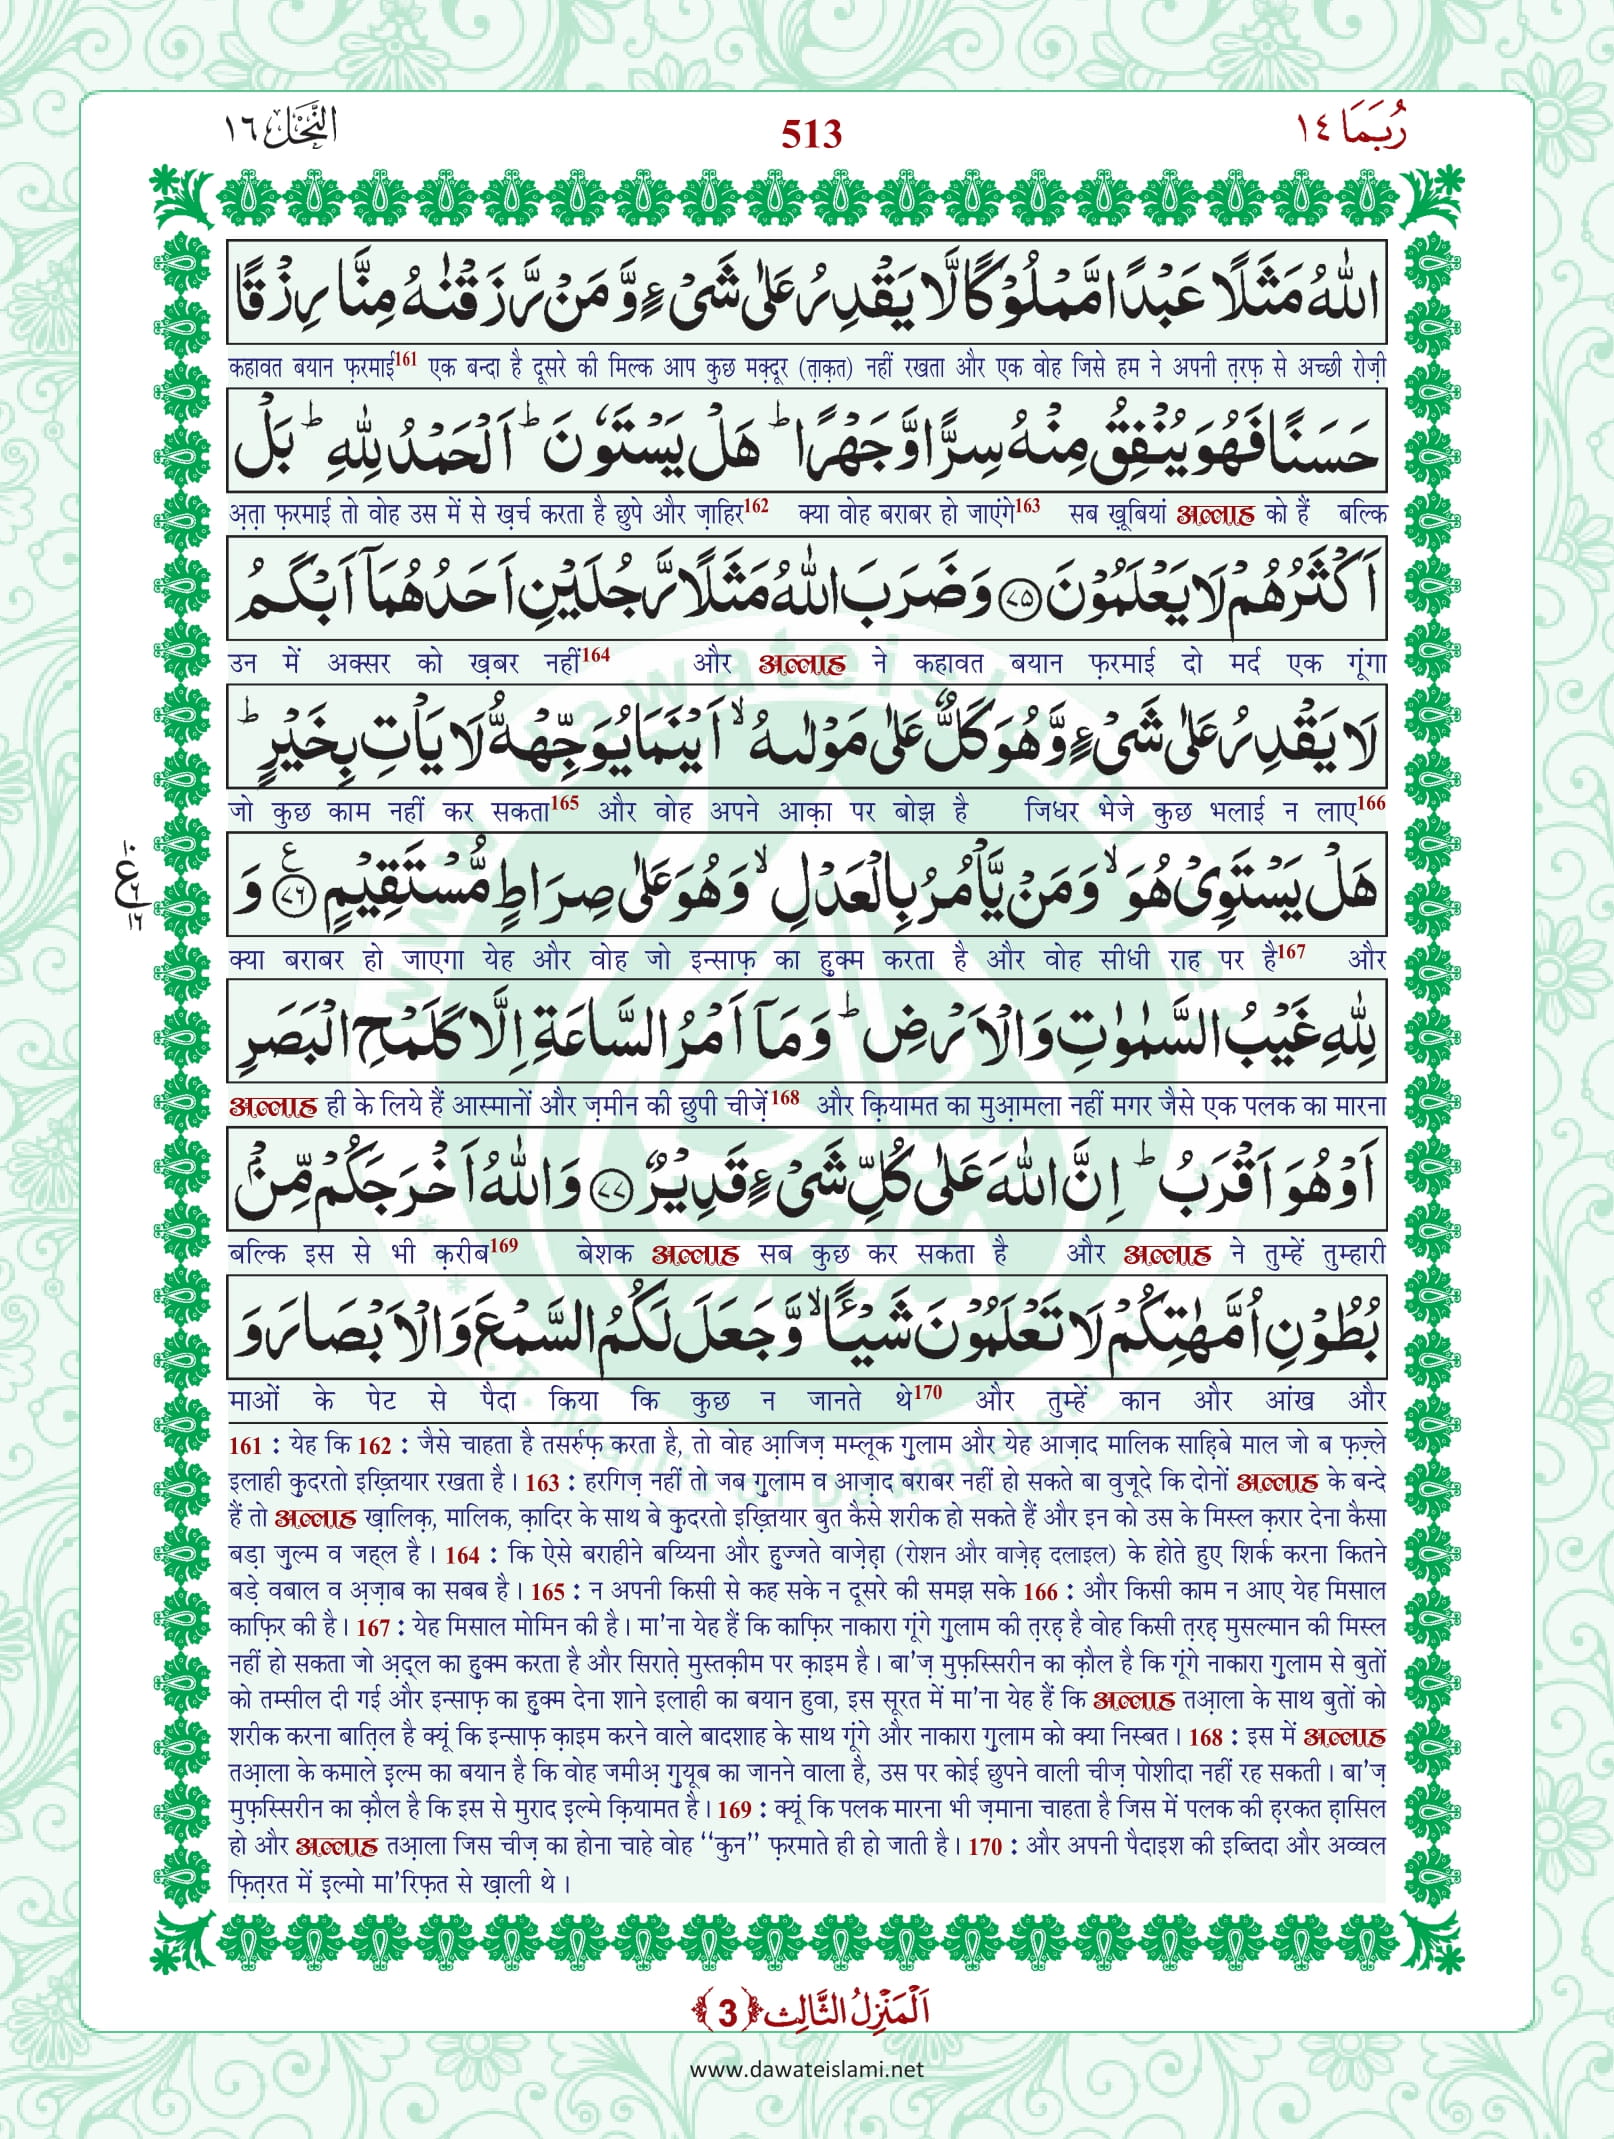 النَّحل ١٦
513
رُبَمَا ١٤
اللّٰهُ مَثَلًا عَبْدًا مَّمْلُوْكًا لَّا یَقْدِرُ عَلٰى شَیْءٍ وَّ مَنْ رَّزَقْنٰهُ مِنَّا رِزْقًا
कहावत बयान फ़रमाई161 एक बन्दा है दूसरे की मिल्क आप कुछ मक़्दूर (त़ाक़त) नहीं रखता और एक वोह जिसे हम ने अपनी त़रफ़ से अच्छी रोज़ी
حَسَنًا فَهُوَ یُنْفِقُ مِنْهُ سِرًّا وَّ جَهْرًاؕ هَلْ یَسْتَوٗنَؕ اَلْحَمْدُ لِلّٰهِؕ بَلْ
अ़त़ा फ़रमाई तो वोह उस में से ख़र्च करता है छुपे और ज़ाहिर162 क्या वोह बराबर हो जाएंगे163 सब ख़ूबियां अल्लाह को हैं बल्कि
اَكْثَرُهُمْ لَا یَعْلَمُوْنَ ﴿۷۵﴾ وَ ضَرَبَ اللّٰهُ مَثَلًا رَّجُلَیْنِ اَحَدُهُمَاۤ اَبْكَمُ
उन में अक्सर को ख़बर नहीं164 और अल्लाह ने कहावत बयान फ़रमाई दो मर्द एक गूंगा
لَا یَقْدِرُ عَلٰى شَیْءٍ وَّ هُوَ كَلٌّ عَلٰى مَوْلٰىهُۙ اَیْنَمَا یُوَجِّهْهُّ لَا یَاْتِ بِخَیْرٍؕ
जो कुछ काम नहीं कर सकता165 और वोह अपने आक़ा पर बोझ है जिधर भेजे कुछ भलाई न लाए166
هَلْ یَسْتَوِیْ هُوَۙ وَ مَنْ یَّاْمُرُ بِالْعَدْلِۙ وَ هُوَ عَلٰى صِرَاطٍ مُّسْتَقِیْمٍ ﴿۷۶﴾ ع وَ
١٠ ع ٦ ١٦
क्या बराबर हो जाएगा येह और वोह जो इन्साफ़ का हुक्म करता है और वोह सीधी राह पर है167 और
لِلّٰهِ غَیْبُ السَّمٰوٰتِ وَ الْاَرْضِؕ وَ مَاۤ اَمْرُ السَّاعَةِ اِلَّا كَلَمْحِ الْبَصَرِ
अल्लाह ही के लिये हैं आस्मानों और ज़मीन की छुपी चीज़ें168 और क़ियामत का मुआ़मला नहीं मगर जैसे एक पलक का मारना
اَوْ هُوَ اَقْرَبُؕ اِنَّ اللّٰهَ عَلٰى كُلِّ شَیْءٍ قَدِیْرٌ ﴿۷۷﴾ وَ اللّٰهُ اَخْرَجَكُمْ مِّنْۢ
बल्कि इस से भी क़रीब169 बेशक अल्लाह सब कुछ कर सकता है और अल्लाह ने तुम्हें तुम्हारी
بُطُوْنِ اُمَّهٰتِكُمْ لَا تَعْلَمُوْنَ شَیْــٴًـاۙ وَّ جَعَلَ لَكُمُ السَّمْعَ وَ الْاَبْصَارَ وَ
माओं के पेट से पैदा किया कि कुछ न जानते थे170 और तुम्हें कान और आंख और
161 : येह कि 162 : जैसे चाहता है तसर्रुफ़ करता है, तो वोह आ़जिज़ मम्लूक ग़ुलाम और येह आज़ाद मालिक साह़िबे माल जो ब फ़ज़्ले
इलाही क़ुदरतो इख़्तियार रखता है । 163 : हरगिज़ नहीं तो जब ग़ुलाम व आज़ाद बराबर नहीं हो सकते बा वुजूदे कि दोनों अल्लाह के बन्दे
हैं तो अल्लाह ख़ालिक़, मालिक, क़ादिर के साथ बे क़ुदरतो इख़्तियार बुत कैसे शरीक हो सकते हैं और इन को उस के मिस्ल क़रार देना कैसा
बड़ा ज़ुल्म व जह्ल है । 164 : कि ऐसे बराहीने बय्यिना और हुज्जते वाज़ेह़ा (रोशन और वाज़ेह़ दलाइल) के होते हुए शिर्क करना कितने
बड़े वबाल व अ़ज़ाब का सबब है । 165 : न अपनी किसी से कह सके न दूसरे की समझ सके 166 : और किसी काम न आए येह मिसाल
काफ़िर की है । 167 : येह मिसाल मोमिन की है । मा'ना येह हैं कि काफ़िर नाकारा गूंगे ग़ुलाम की त़रह़ है वोह किसी त़रह़ मुसल्मान की मिस्ल
नहीं हो सकता जो अ़द्ल का हुक्म करता है और सिरात़े मुस्तक़ीम पर क़ाइम है । बा'ज़ मुफ़स्सिरीन का क़ौल है कि गूंगे नाकारा ग़ुलाम से बुतों
को तम्सील दी गई और इन्साफ़ का हुक्म देना शाने इलाही का बयान हुवा, इस सूरत में मा'ना येह हैं कि अल्लाह तआ़ला के साथ बुतों को
शरीक करना बात़िल है क्यूं कि इन्साफ़ क़ाइम करने वाले बादशाह के साथ गूंगे और नाकारा ग़ुलाम को क्या निस्बत । 168 : इस में अल्लाह
तआ़ला के कमाले इ़ल्म का बयान है कि वोह जमीअ़ ग़ुयूब का जानने वाला है, उस पर कोई छुपने वाली चीज़ पोशीदा नहीं रह सकती । बा'ज़
मुफ़स्सिरीन का क़ौल है कि इस से मुराद इ़ल्मे क़ियामत है । 169 : क्यूं कि पलक मारना भी ज़माना चाहता है जिस में पलक की ह़रकत ह़ासिल
हो और अल्लाह तआ़ला जिस चीज़ का होना चाहे वोह “कुन” फ़रमाते ही हो जाती है । 170 : और अपनी पैदाइश की इब्तिदा और अव्वल
फ़ित़रत में इ़ल्मो मा'रिफ़त से ख़ाली थे ।
اَلْمَنْزِلُ الثَّالِث ﴿3﴾
www.dawateislami.net